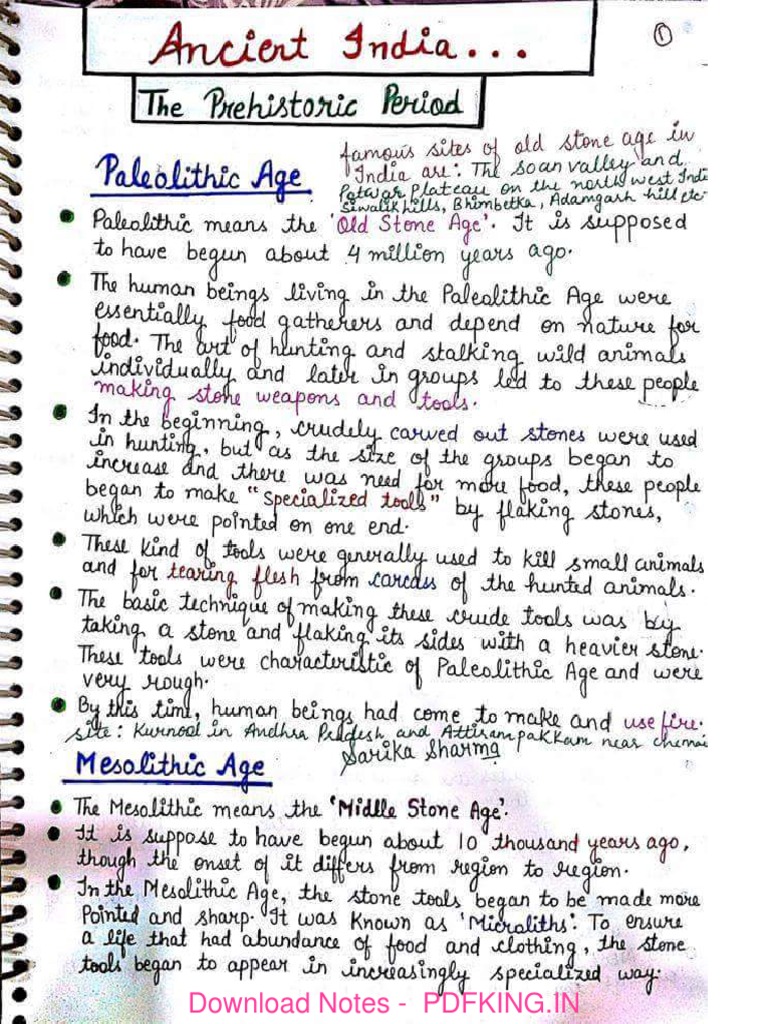 Ancient India...
1
The Prehistoric Period
Paleolithic Age
famous sites of old stone age in
India are: The soan valley and
Potwar Plateau on the north west Indi
Siwalik hills, Bhimbetka, Adamgarh hill etc
Paleolithic means the 'Old Stone Age'. It is supposed
to have begun about 4 million years ago.
The human beings living in the Paleolithic Age were
essentially food gatherers and depend on nature for
food. The art of hunting and stalking wild animals
individually and later in groups led to these people
making stone weapons and tools.
In the beginning, crudely carved out stones were used
in hunting, but as the size of the groups began to
increase and there was need for more food, these people
began to make "specialized tools" by flaking stones,
which were pointed on one end.
These kind of tools were generally used to kill small animals
and for tearing flesh from carcass of the hunted animals.
The basic technique of making these crude tools was by
taking a stone and flaking its sides with a heavier stone.
These tools were characteristic of Paleolithic Age and were
very rough.
By this time, human beings had come to make and use fire.
site: Kurnool in Andhra Pradesh and Attirampakkam near chennai
Sarika Sharma
Mesolithic Age
The Mesolithic means the 'Middle Stone Age'.
It is suppose to have begun about 10 thousand years ago,
though the onset of it differs from region to region.
In the Mesolithic Age, the stone tools began to be made more
Pointed and sharp. It was Known as 'Microliths'. To ensure
a life that had abundance of food and clothing, the stone
tools began to appear in increasingly specialized way.
Download Notes - PDFKING.IN